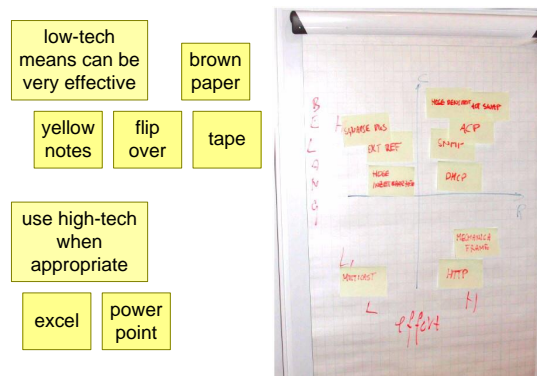 low-tech
means can be
very effective
brown
paper
yellow
notes
flip
over
tape
use high-tech
when
appropriate
excel
power
point
B
E
L
A
N
G
H
EXT REF
ACP
SNMP
DHCP
R
MECHANICA
FRAME
HTTP
L
MULTICAST
L
H
effort